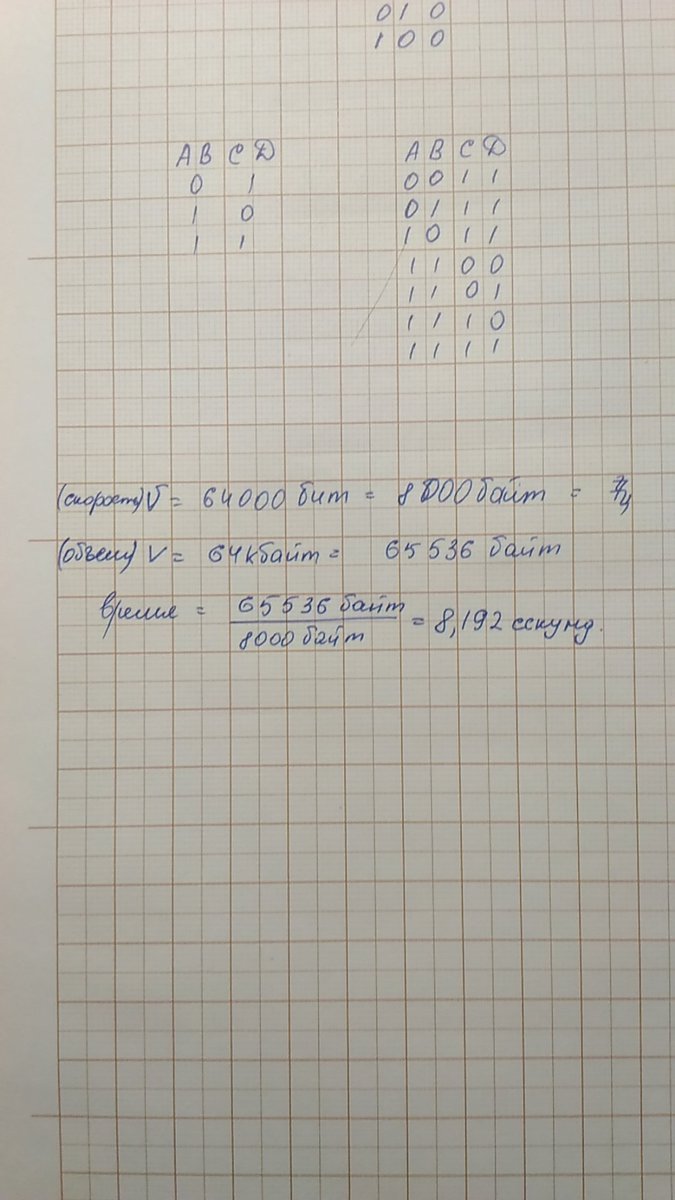 0 1 0
1 0 0
A B C D
0 1
1 0
1 1
A B C D
0 0 1 1
0 1 1 1
1 0 1 1
1 1 0 0
1 1 0 1
1 1 1 0
1 1 1 1
(скорость) V = 64000 бит = 8000 байт =
(объем) V = 64 кбайт = 65 536 байт
время = 65 536 байт / 8000 байт = 8,192 секунд.